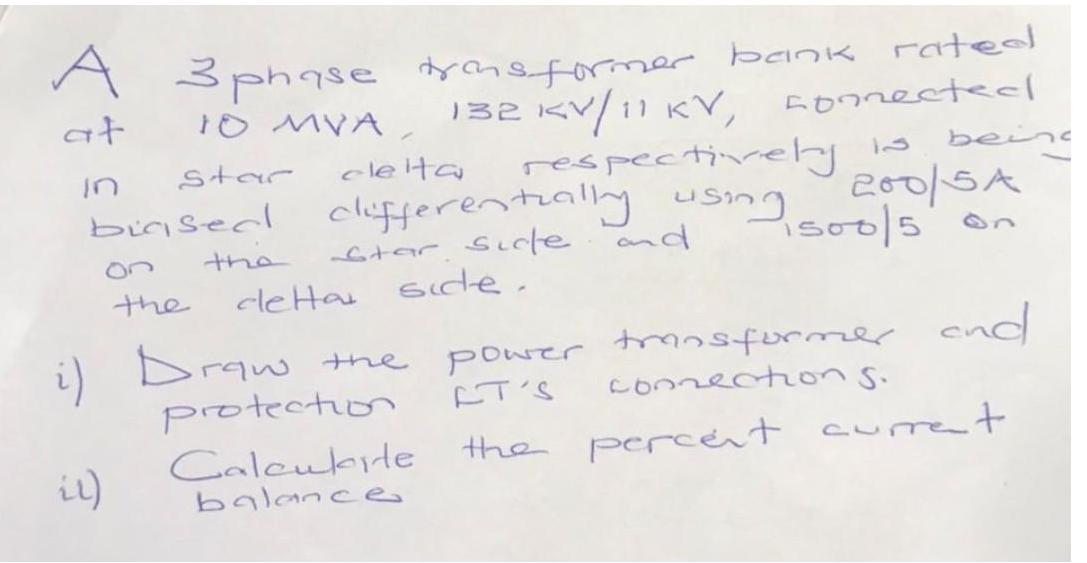 A 3 phase transformer bank rated
at 10 MVA, 132 KV/11 KV, connected
in star delta respectively is being
biased differentially using 200/5A
on the star side and 1500/5 on
the delta side.
i) Draw the power transformer and
protection CT's connections.
ii) Calculate the percent current
balance